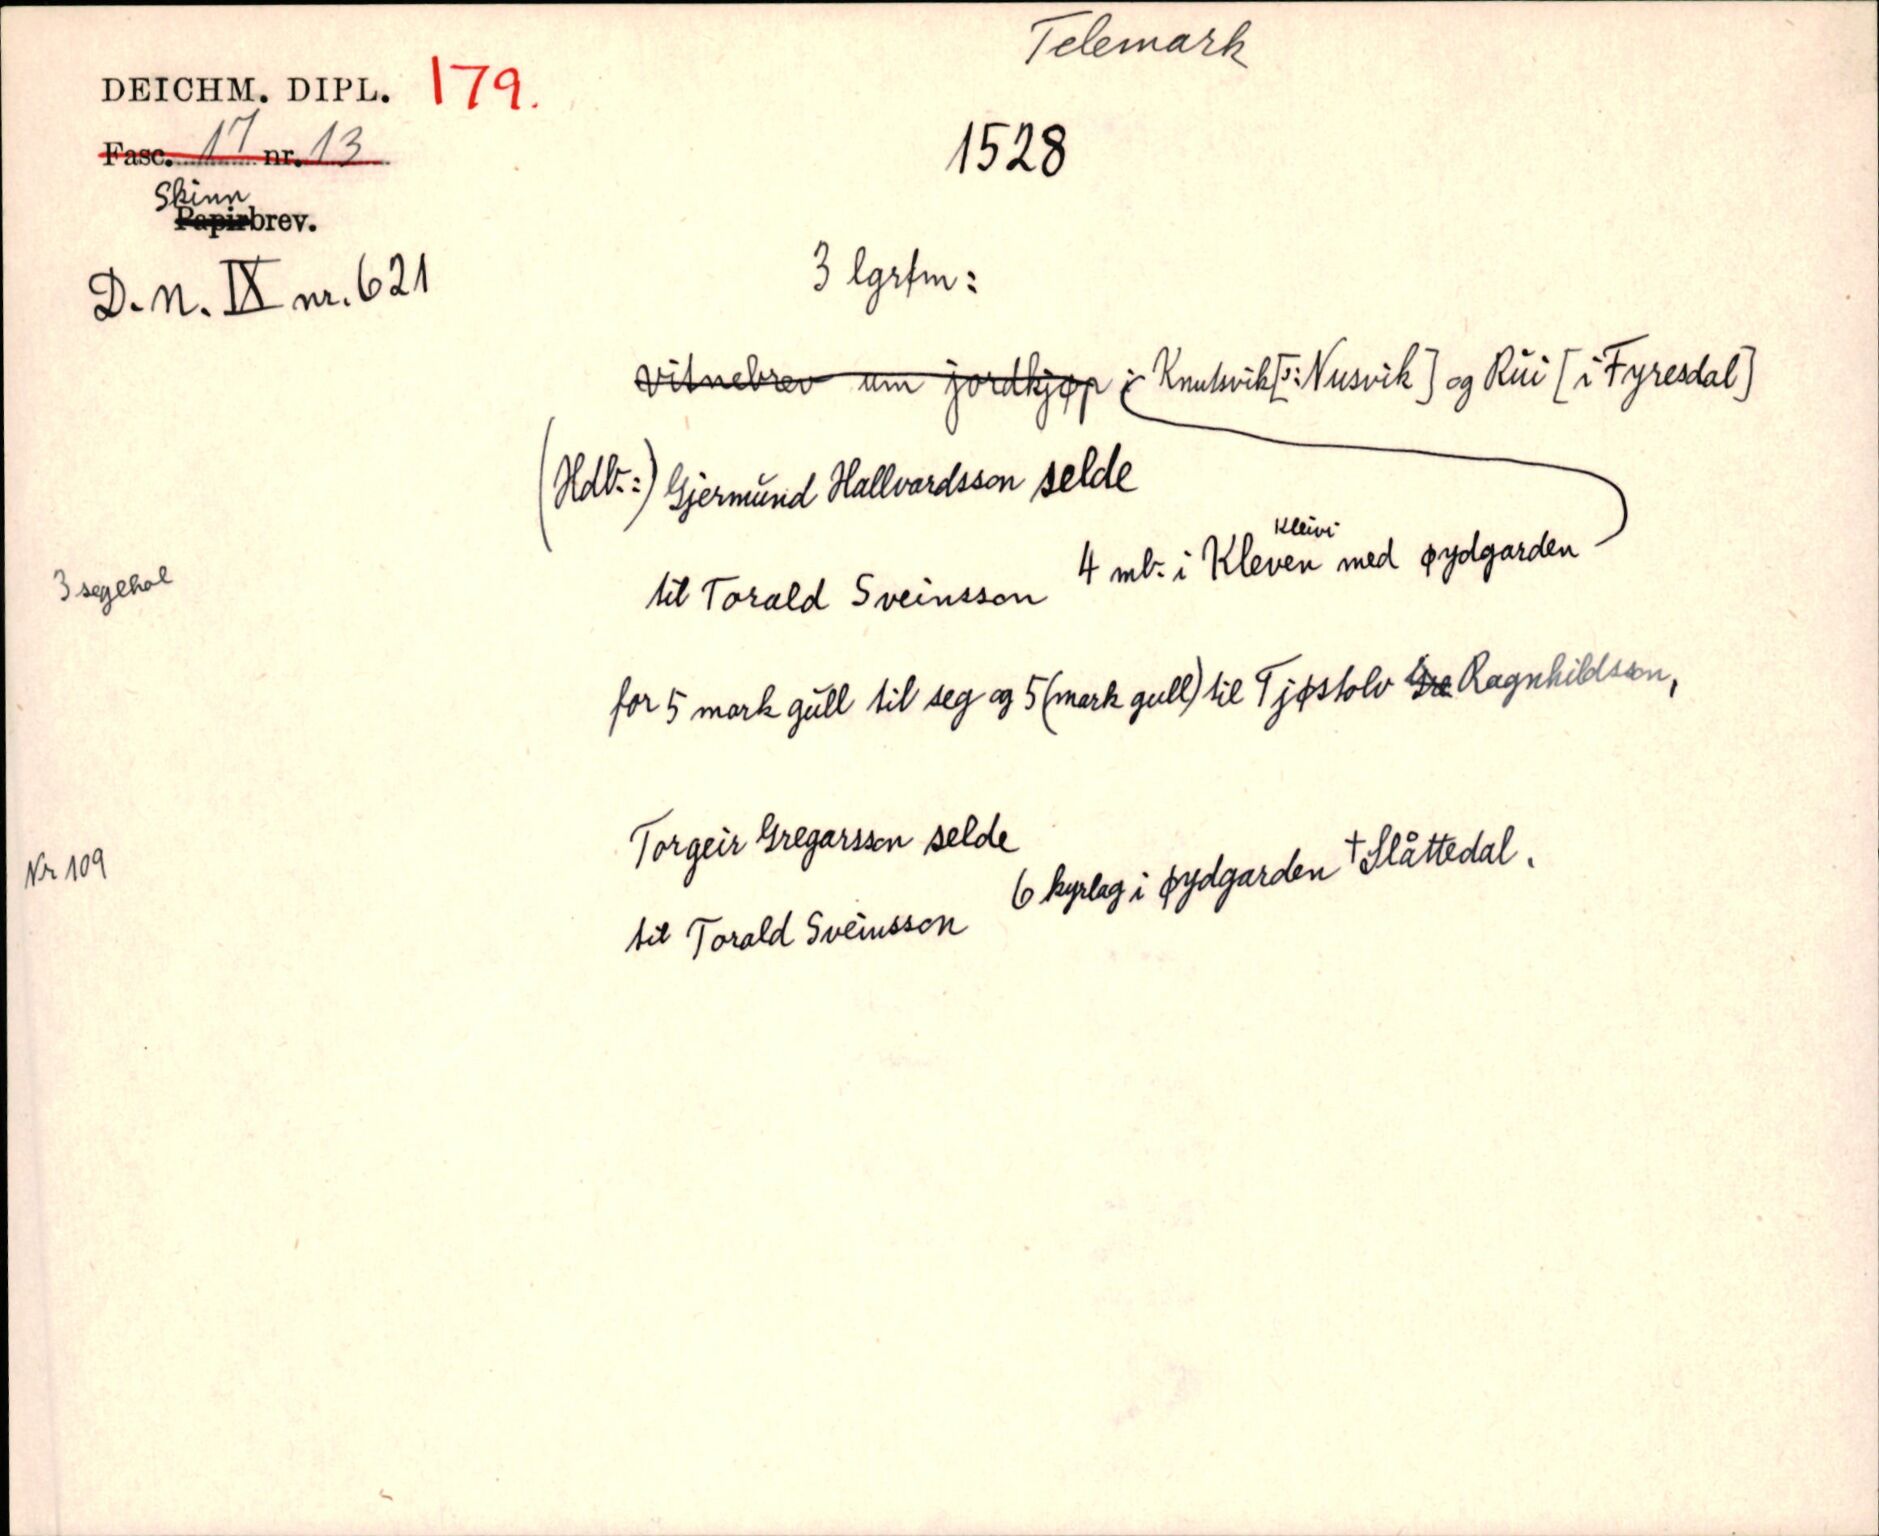 Telemark
DEICHM. DIPL. 179.
Fasc. 17 nr. 13
1528
Skinn
Papirbrev.
D.N. IX nr. 621
3 lgrfm:
vitnebrev um jordkjøp i Knutsvik [ɔ: Nusvik] og Rui [i Fyresdal]
(Hdb.:) Gjermund Hallvardsson selde
Kleivi
4 mb. i Kleven med øydgarden
til Torald Sveinsson
3 seglhol
for 5 mark gull til seg og 5 (mark gull) til Tjøstolv Gre Ragnhildsson,
Torgeir Gregarsson selde
6 kyrlag i øydgarden †Slåttedal.
Nr 109
til Torald Sveinsson